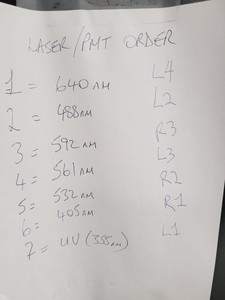 LASER/PMT ORDER
1 = 640nm L4
2 = 488nm L2
3 = 592nm R3
4 = 561nm L3
5 = 532nm R2
6 = 405nm R1
7 = UV (355nm) L1